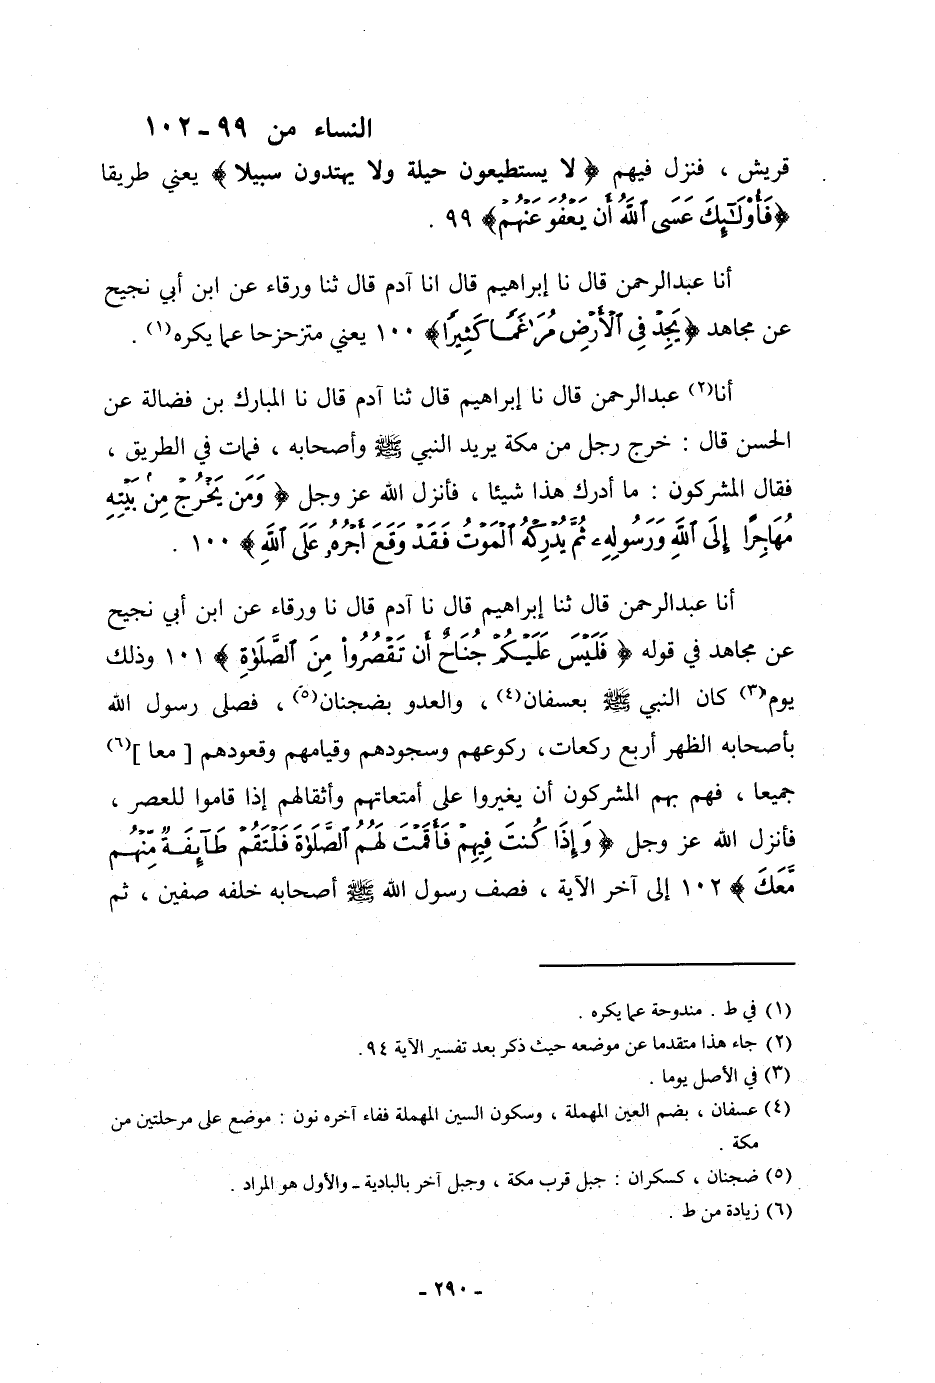 النساء من ٩٩ـ١٠٢
قريش ، فنزل فيهم ﴿ لا يستطيعون حيلة ولا يهتدون سبيلا ﴾ يعني طريقا
﴿فَأُوْلَٰٓئِكَ عَسَى ٱللَّهُ أَن يَعْفُوَ عَنْهُمْ﴾ ٩٩ .
أنا عبدالرحمن قال نا إبراهيم قال انا آدم قال ثنا ورقاء عن ابن أبي نجيح
عن مجاهد ﴿يَجِدْ فِي ٱلْأَرْضِ مُرَٰغَمًا كَثِيرًا﴾ ١٠٠ يعني متزحزحا عما يكره(١) .
أنا(٢) عبدالرحمن قال نا إبراهيم قال ثنا آدم قال نا المبارك بن فضالة عن
الحسن قال : خرج رجل من مكة يريد النبي ﷺ وأصحابه ، فمات في الطريق ،
فقال المشركون : ما أدرك هذا شيئا ، فأنزل الله عز وجل ﴿ وَمَن يَخْرُجْ مِنۢ بَيْتِهِ
مُهَاجِرًا إِلَى ٱللَّهِ وَرَسُولِهِۦ ثُمَّ يُدْرِكْهُ ٱلْمَوْتُ فَقَدْ وَقَعَ أَجْرُهُۥ عَلَى ٱللَّهِ ﴾ ١٠٠ .
أنا عبدالرحمن قال ثنا إبراهيم قال نا آدم قال نا ورقاء عن ابن أبي نجيح
عن مجاهد في قوله ﴿ فَلَيْسَ عَلَيْكُمْ جُنَاحٌ أَن تَقْصُرُوا۟ مِنَ ٱلصَّلَوٰةِ ﴾ ١٠١ وذلك
يوم(٣) كان النبي ﷺ بعسفان(٤) ، والعدو بضجنان(٥) ، فصلى رسول الله
بأصحابه الظهر أربع ركعات، ركوعهم وسجودهم وقيامهم وقعودهم [ معا ](٦)
جميعا ، فهم بهم المشركون أن يغيروا على أمتعاتهم وأثقالهم إذا قاموا للعصر ،
فأنزل الله عز وجل ﴿ وَإِذَا كُنتَ فِيهِمْ فَأَقَمْتَ لَهُمُ ٱلصَّلَوٰةَ فَلْتَقُمْ طَآئِفَةٌ مِّنْهُم
مَّعَكَ ﴾ ١٠٢ إلى آخر الآية ، فصف رسول الله ﷺ أصحابه خلفه صفين ، ثم
(١) في ط . مندوحة عما يكره .
(٢) جاء هذا متقدما عن موضعه حيث ذكر بعد تفسير الآية ٩٤.
(٣) في الأصل يوما .
(٤) عسفان ، بضم العين المهملة ، وسكون السين المهملة ففاء آخره نون : موضع على مرحلتين من
مكة .
(٥) ضجنان ، كسكران : جبل قرب مكة ، وجبل آخر بالبادية ـ والأول هو المراد .
(٦) زيادة من ط .
ـ ٢٩٠ ـ